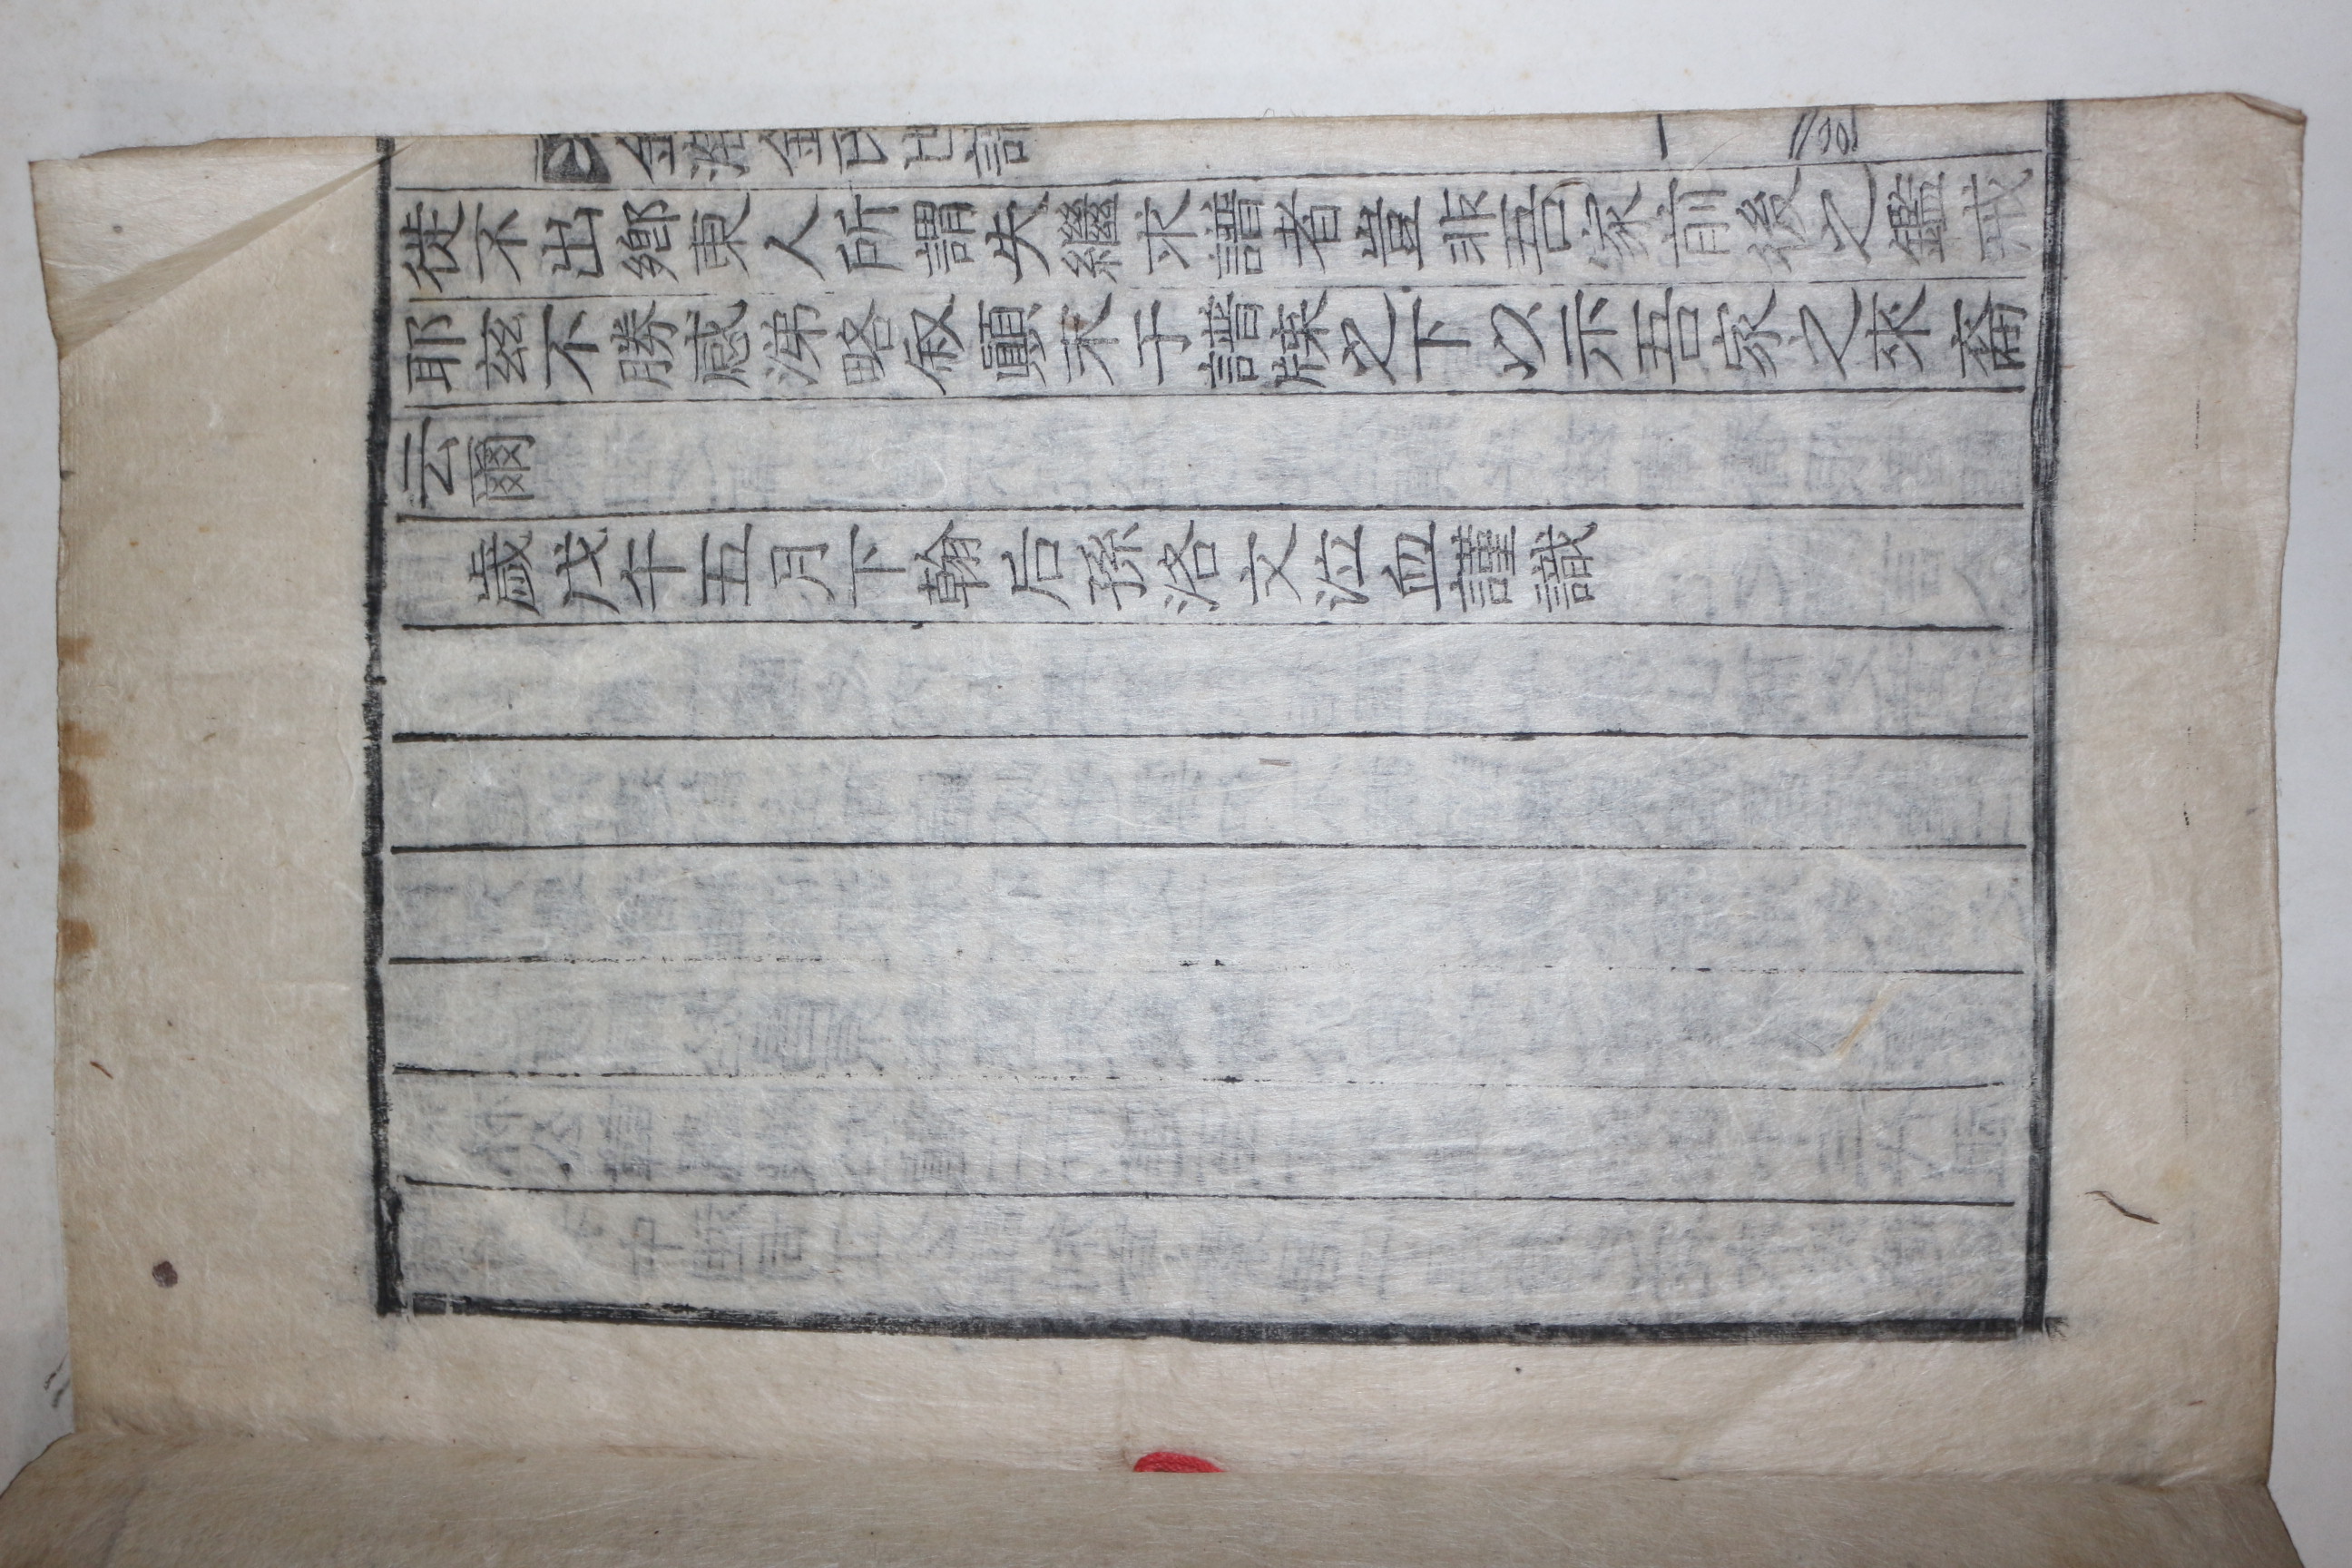 金海金氏世譜
一
徙不出鄕東人所謂失繼求譜者豈非吾家前後之鑑戒
耶玆不勝感涕略叙顚末于譜牒之下以示吾家之來裔
云爾
歲戊午五月下翰后孫洛文泣血謹識